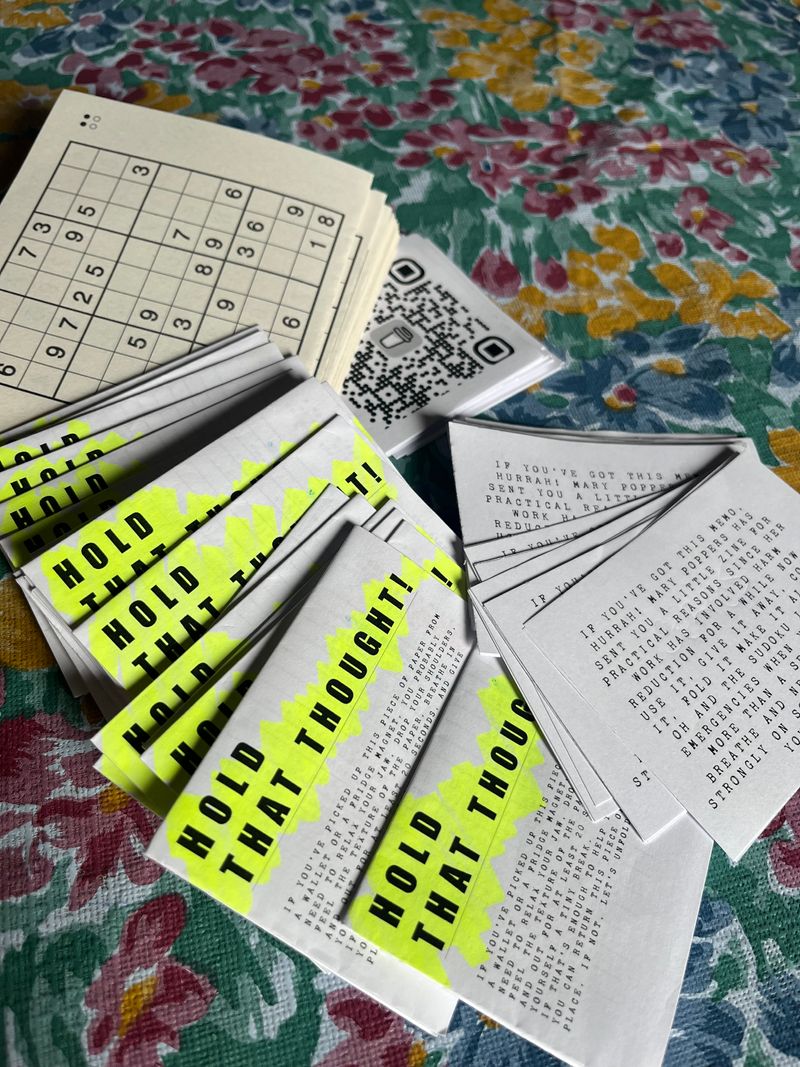 3 6 9 8
5 6 1
3 9 7 9 3
7 5 8
2 9
7 3 6
9 5
6
HOLD
HOLD
HOLD
HOLD
THAT
HOLD
THAT THO
T!
HOLD
HOLD
!
HOLD
THAT THOUGHT!
IF YOU'VE PICKED UP THIS PIECE OF PAPER FROM
A WALLET OR A FRIDGE MAGNET, YOU PROBABLY
NEED TO RELAX YOUR JAW, DROP YOUR SHOULDERS,
FEEL THE TEXTURE OF THE PAPER, BREATHE IN
AND OUT FOR AT LEAST 20 SECONDS, AND GIVE
HOLD
THAT THOUG
IF YOU'VE PICKED UP THIS PIEC
A WALLET OR A FRIDGE MAGNET
NEED TO RELAX YOUR JAW, DRO
FEEL THE TEXTURE OF THE PA
AND OUT FOR AT LEAST 20 S
YOURSELF A TINY BREAK.
IF THAT'S ENOUGH TO HELP,
YOU CAN RETURN THIS PIECE O
PLACE. IF NOT LET'S UNFOL
IF YOU'VE GOT THIS ME
HURRAH! MARY POPPE
SENT YOU A LITTL
PRACTICAL REA
WORK HA
REDUC
IF YOU'VE
IF YOU'
ST
IF YOU'VE GOT THIS MEMO,
HURRAH! MARY POPPERS HAS
SENT YOU A LITTLE ZINE FOR
PRACTICAL REASONS SINCE HER
WORK HAS INVOLVED HARM
REDUCTION FOR A WHILE NOW
USE IT, GIVE IT AWAY, CO
IT, FOLD IT MAKE IT A
OH AND THE SUDOKU
EMERGENCIES WHEN
MORE THAN A S
BREATHE AND N
STRONGLY ON S
YO